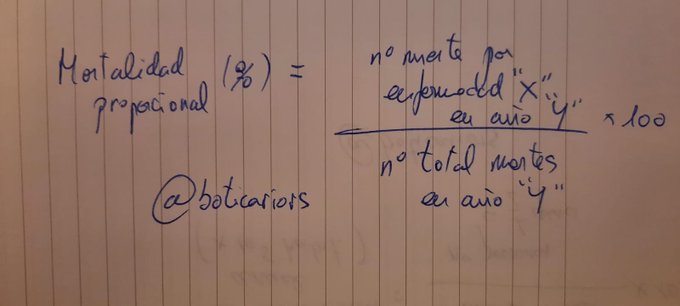 Mortalidad (%) =
proporcional
nº muerte por
enfermedad "X"
en año "Y"
× 100
nº total muertes
en año "Y"
@boticariors